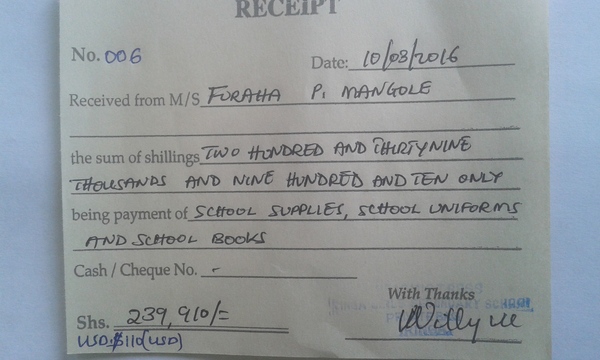 RECEIPT
No. 006 Date: 10/03/2016
Received from M/S FURAHA P. MANGOLE
the sum of shillings TWO HUNDRED AND THIRTYNINE
THOUSANDS AND NINE HUNDRED AND TEN ONLY
being payment of SCHOOL SUPPLIES, SCHOOL UNIFORMS
AND SCHOOL BOOKS
Cash / Cheque No. -
With Thanks
Shs. 239,910/=
USD.$110(USD)